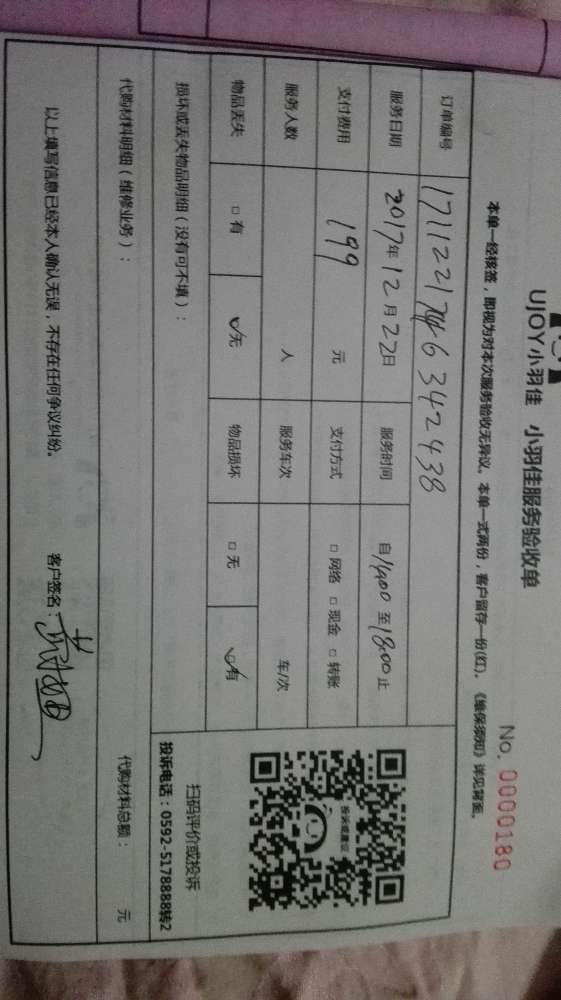 UJOY小羽佳 小羽佳服务验收单
No. 0000180
本单一经核签，即视为对本次服务验收无异议。本单一式两份，客户留存一份(红)。《维保须知》详见背面。
订单编号 342438
服务日期 2017年12月22日 服务时间 自14:00至18:00止
支付费用 199 元 支付方式 □ 网络 □ 现金 □ 转账
服务人数 人 服务车次 车/次
物品丢失 □ 有 ☑ 无 物品损坏 □ 无 ☑ 有
损坏或丢失物品明细（没有可不填）：
投诉或建议
扫码评价或投诉
投诉电话：0592-5178888转2
代购材料明细（维修业务）： 代购材料总额： 元
以上填写信息已经本人确认无误，不存在任何争议纠纷。 客户签名：